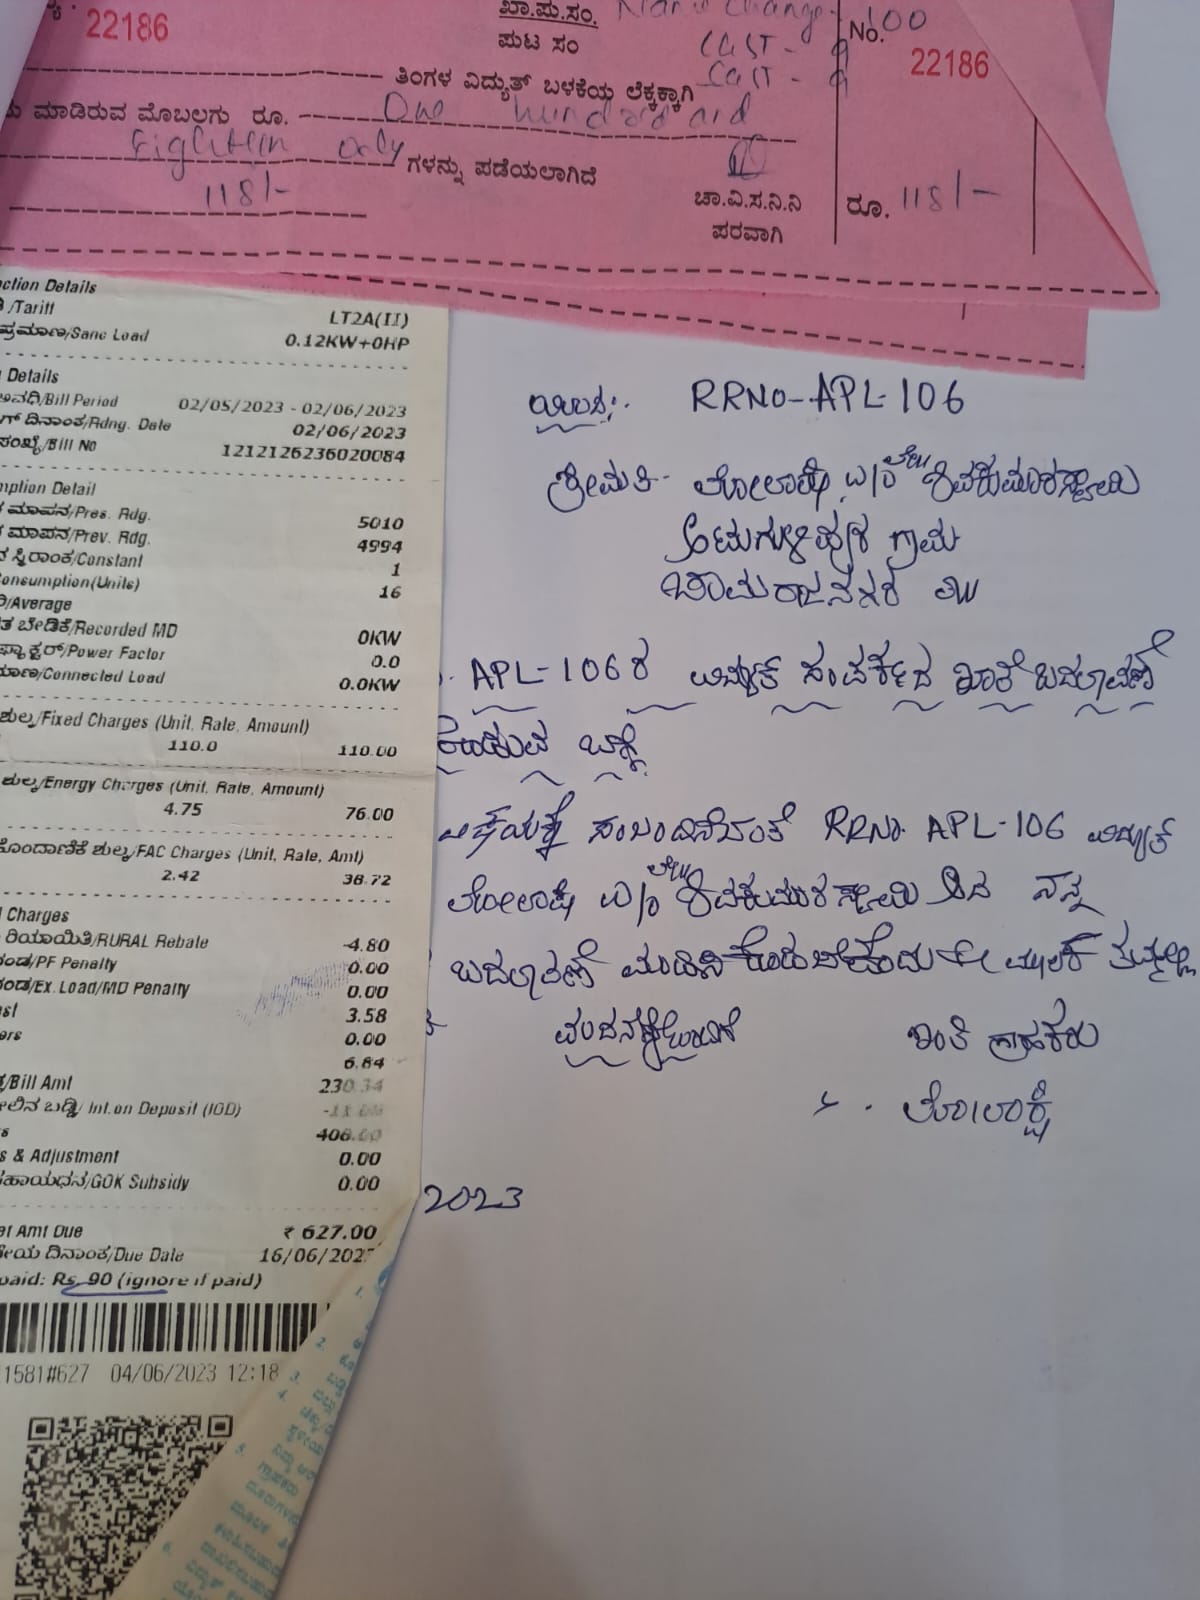 22186
ಖಾ.ಪು.ಸಂ. Name Change - 100
No.
ಪುಟ ಸಂ CGST - 9
22186
SGST - 9
ತಿಂಗಳ ವಿದ್ಯುತ್ ಬಳಕೆಯ ಲೆಕ್ಕಕ್ಕಾಗಿ
ಮಾಡಿರುವ ಮೊಬಲಗು ರೂ. One hundred and
Eighteen only ಗಳನ್ನು ಪಡೆಯಲಾಗಿದೆ
118/-
ಚಾ.ವಿ.ಸ.ನಿ.ನಿ
ಪರವಾಗಿ
ರೂ. 118/-
ction Details
/Tariff LT2A(II)
ಪ್ರಮಾಣ/Sanc Load 0.12KW+0HP
Details
ಅವಧಿ/Bill Period 02/05/2023 - 02/06/2023
ಗ್ ದಿನಾಂಕ/Rdng. Date 02/06/2023
ಸಂಖ್ಯೆ/Bill No 1212126236020084
mption Detail
ಮಾಪನ/Pres. Rdg. 5010
ಮಾಪನ/Prev. Rdg. 4994
ಸ್ಥಿರಾಂಕ/Constant 1
onsumption(Units) 16
/Average
ಬೇಡಿಕೆ/Recorded MD 0KW
ಫ್ಯಾಕ್ಟರ್/Power Factor 0.0
ಮಾಣ/Connected Load 0.0KW
ಶುಲ್ಕ/Fixed Charges (Unit, Rate, Amount)
110.0 110.00
ಶುಲ್ಕ/Energy Charges (Unit, Rate, Amount)
4.75 76.00
ಹೊಂದಾಣಿಕೆ ಶುಲ್ಕ/FAC Charges (Unit, Rate, Amt)
2.42 38.72
Charges
ರಿಯಾಯಿತಿ/RURAL Rebate -4.80
ದಂಡ/PF Penalty 0.00
ದಂಡ/Ex. Load/MD Penalty 0.00
est 3.58
ers 0.00
6.84
/Bill Amt 230.34
ಮೇಲಿನ ಬಡ್ಡಿ/ Int.on Deposit (IOD)
s 408.00
s & Adjustment 0.00
ಸಹಾಯಧನ/GOK Subsidy 0.00
et Amt Due ₹ 627.00
ದಿನಾಂಕ/Due Date 16/06/202
paid: Rs. 90 (ignore if paid)
1581#627 04/06/2023 12:18
RRNo-APL-106
ಶ್ರೀಮತಿ ಶಿವಕುಮಾರಸ್ವಾಮಿ
ಗ್ರಾಮ
ಚಾಮರಾಜನಗರ ತಾ॥
APL-106ರ ವಿದ್ಯುತ್ ಸಂಪರ್ಕದ ಖಾತೆ ಬದಲಾವಣೆ
ಕೋರುವ ಬಗ್ಗೆ.
ವಿಷಯಕ್ಕೆ ಸಂಬಂಧಿಸಿದಂತೆ RRNo. APL-106 ವಿದ್ಯುತ್
ಶಿವಕುಮಾರಸ್ವಾಮಿ ನನ್ನ
ಬದಲಾವಣೆ ಮಾಡಿಸಿಕೊಡಬೇಕೆಂದು ಈ ಮೂಲಕ ತಮ್ಮಲ್ಲಿ
ವಂದನೆಗಳೊಂದಿಗೆ ಇಂತಿ ಗ್ರಾಹಕರು
2023